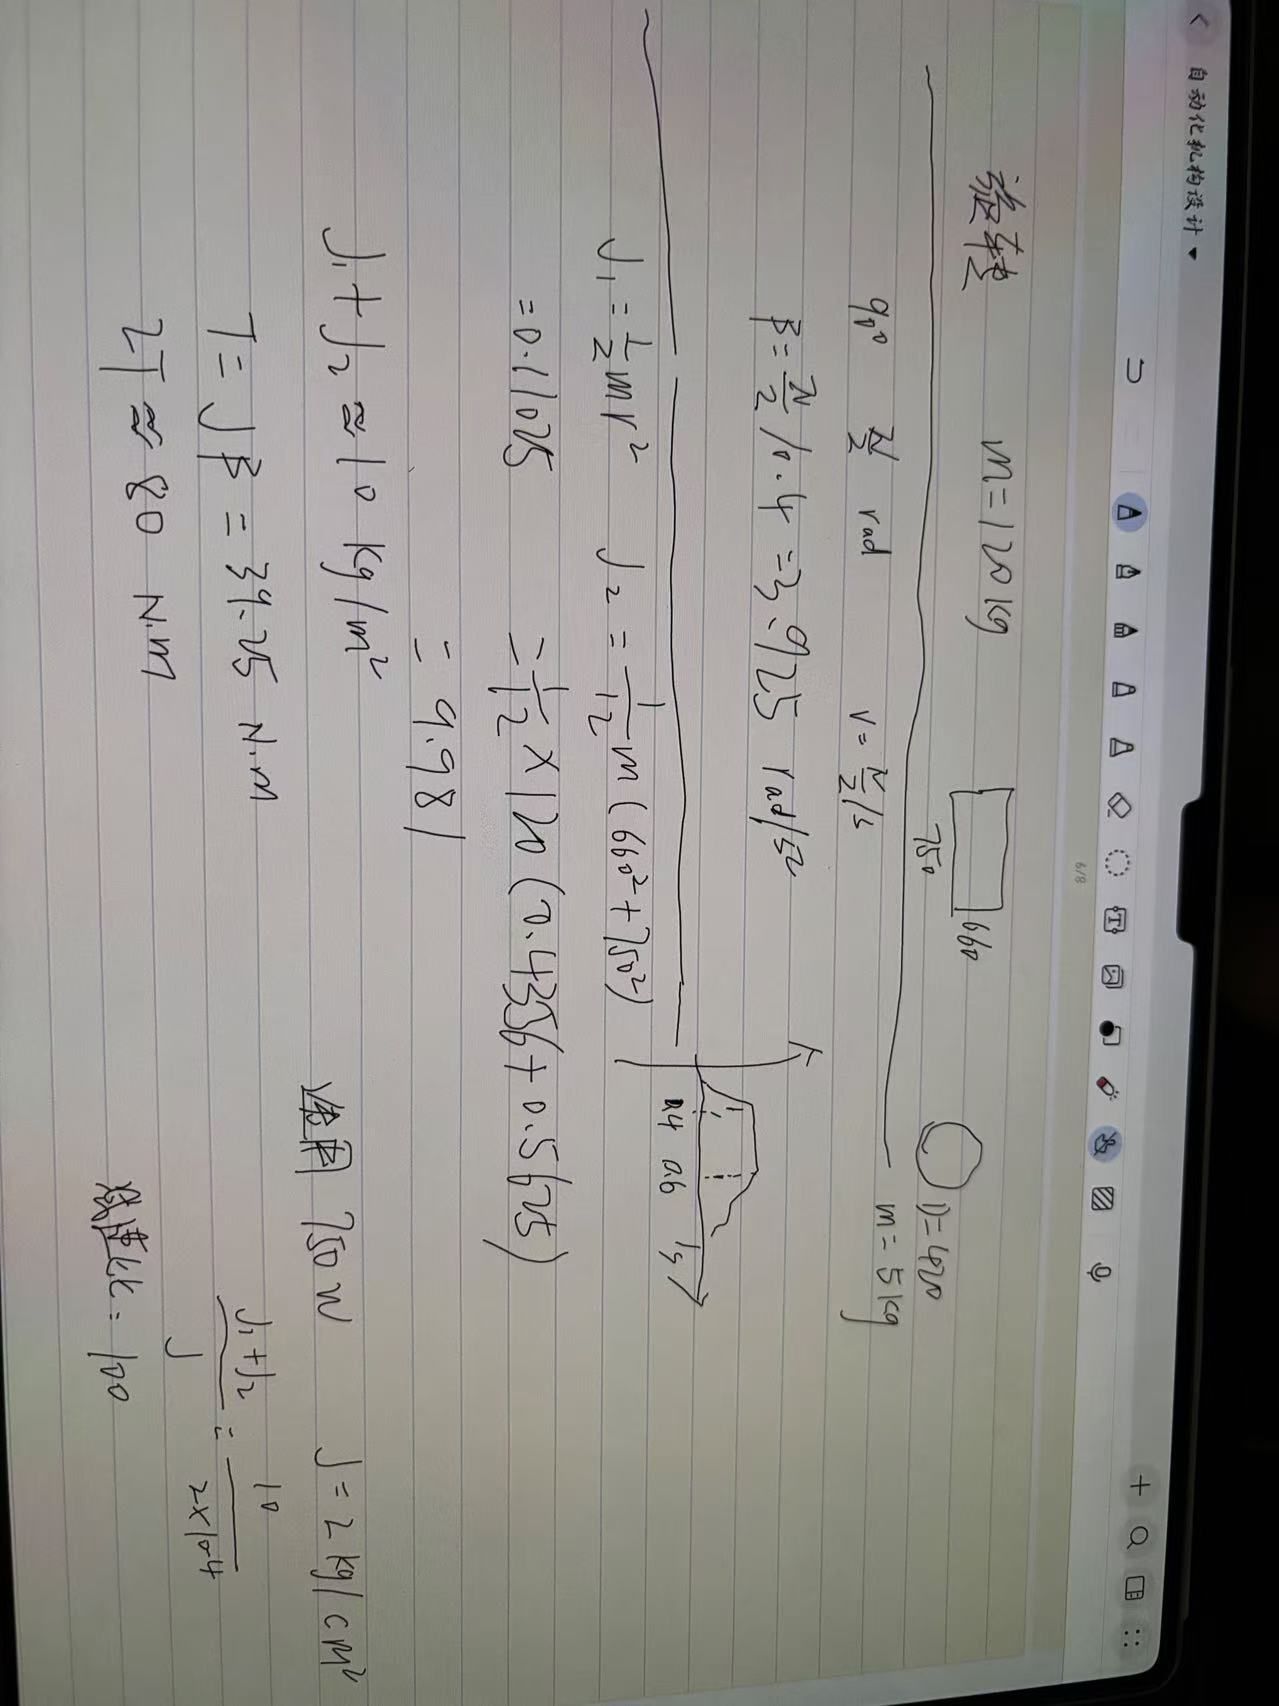 自动化机构设计
6/8
旋转 m=120kg 750 660 D=420
m=5kg
90° π/2 rad v=π/2/s
β=π/2/0.4=3.925 rad/s²
0.4 0.6 1s
J₁=1/2mr² J₂=1/12m(660²+750²)
=0.11025 =1/12×120(0.4356+0.5625)
=9.981
J₁+J₂≈10kg/m² 使用750W J=2kg/cm²
T=Jβ=39.25N.m J₁+J₂/J=10/2×10⁻⁴
2T≈80N.m 减速比=100